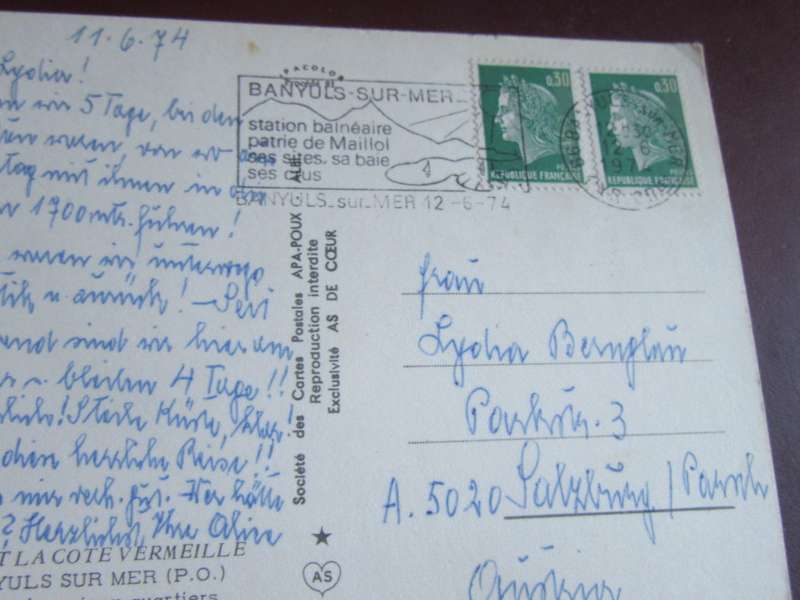 11.6.74
Lydia!
wir 5 Tage, bei den
waren von wo am
tag mit ihnen in
1700 mtr. führen!
waren wir unterwegs
u. zurück! – Seit
sind wir hier am
u. bleiben 4 Tage!!
Steile Küste,
herrliche Reise!!
mir
Herzlichst, Ihre Alice
T LA COTE VERMEILLE
YULS SUR MER (P.O.)
quartiers
APACOLOR
BANYULS-SUR-MER
station balnéaire
patrie de Maillol
ses sites, sa baie
ses
BANYULS-sur-MER 12-6-74
0,30
RÉPUBLIQUE FRANÇAISE
0,30
RÉPUBLIQUE FRANÇAISE
SUR-MER
12-6
Société des Cartes Postales APA-POUX ALBI
Reproduction interdite
Exclusivité AS DE CŒUR
AS
Frau
Lydia Bernglau
3
A. 5020 Salzburg / Parsch